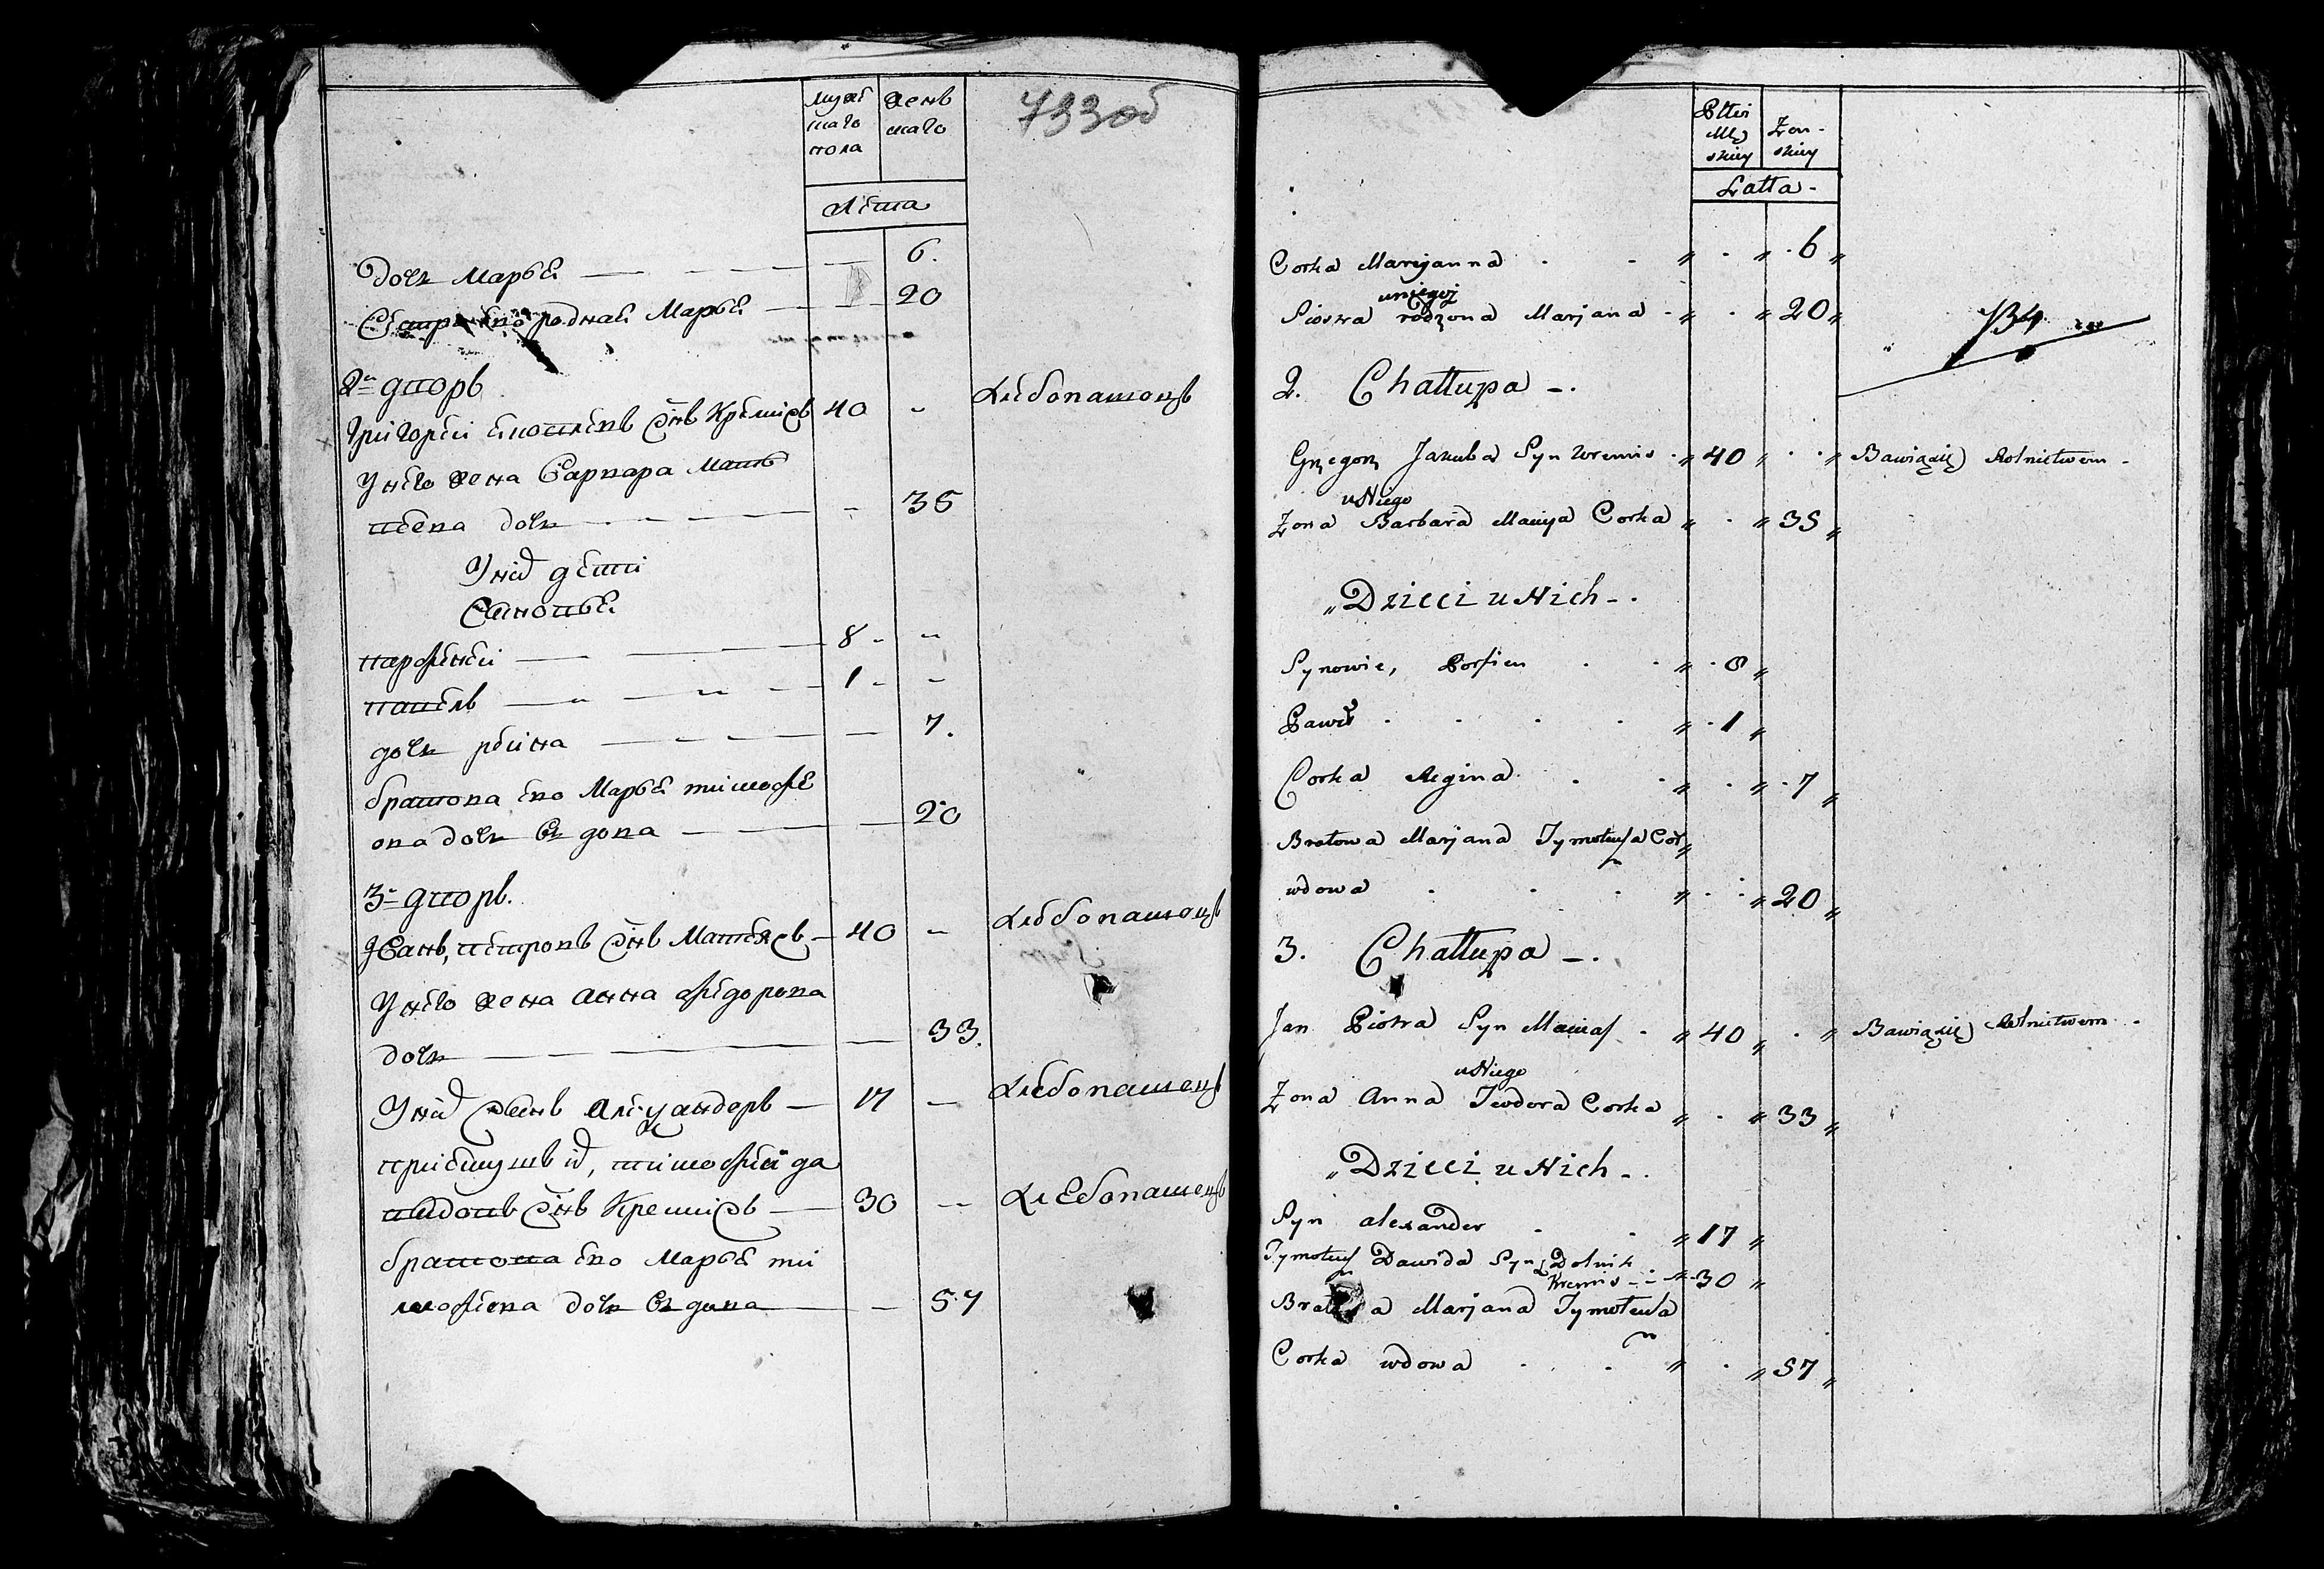 мужс жень
каго скаго
пола
733 об
лета
дочь Марья — 6.
Сестра ево родная Марья — 20
2й дворъ
Григорей Яковлевъ сынъ 40 - хлебопашецъ
У него жена Варвара Мать
веева дочь - 35
У них дети
Сыновья
парфеней — 8 - -
павелъ — 1 - -
дочь регина — 7.
братова ево Марья тимофе
ева дочь вдова — 20
3й дворъ.
Иванъ, петровъ сынъ — 40 - хлебопашецъ
У него жена анна федорова
дочь — 33.
У них сынъ александеръ — 17 — хлебопашецъ
тимофей да
видовъ сынъ — 30 - хлебопашецъ
братова ево Марья ти
мофеева дочь вдова — 57
Płci
Męz Zeń-
skiey skiey
Latta -
Corka Maryanna . - „ . „ . 6 „
uniegoż
Siostra rodzona Marjana - „ . „ 20 „
734
2. Chattupa - .
Grzegorz Jakuba Syn Kremis . „ 40 „ . . „ Bawiącysię Rolnictwem -
u Niego
Zona Barbara Macieja Corka „ . „ 35 „
„ Dzieci u Nich - .
Synowie, Porfien . . „ . 8 „
Paweł . . . . „ . 1 „
Corka Regina . . „ . „ . 7 „
Bratowa Marjana Tymoteusza Cor „
wdowa . . . „ . „ 20 „
3. Chattupa - .
Jan Piotra Syn Maciaſ . „ 40 „ . „ Bawiącysię Rolnictwem -
u Niego
Zona Anna Teodora Corka „ . „ 33 „
„ Dzieci u Nich - .
Syn alexander . . „ 17 „
Tymoteusz Dawida Syn
Kremis - - „ 30 „
Bratowa Marjana Tymoteusza
Corka wdowa . . „ . „ 57 „